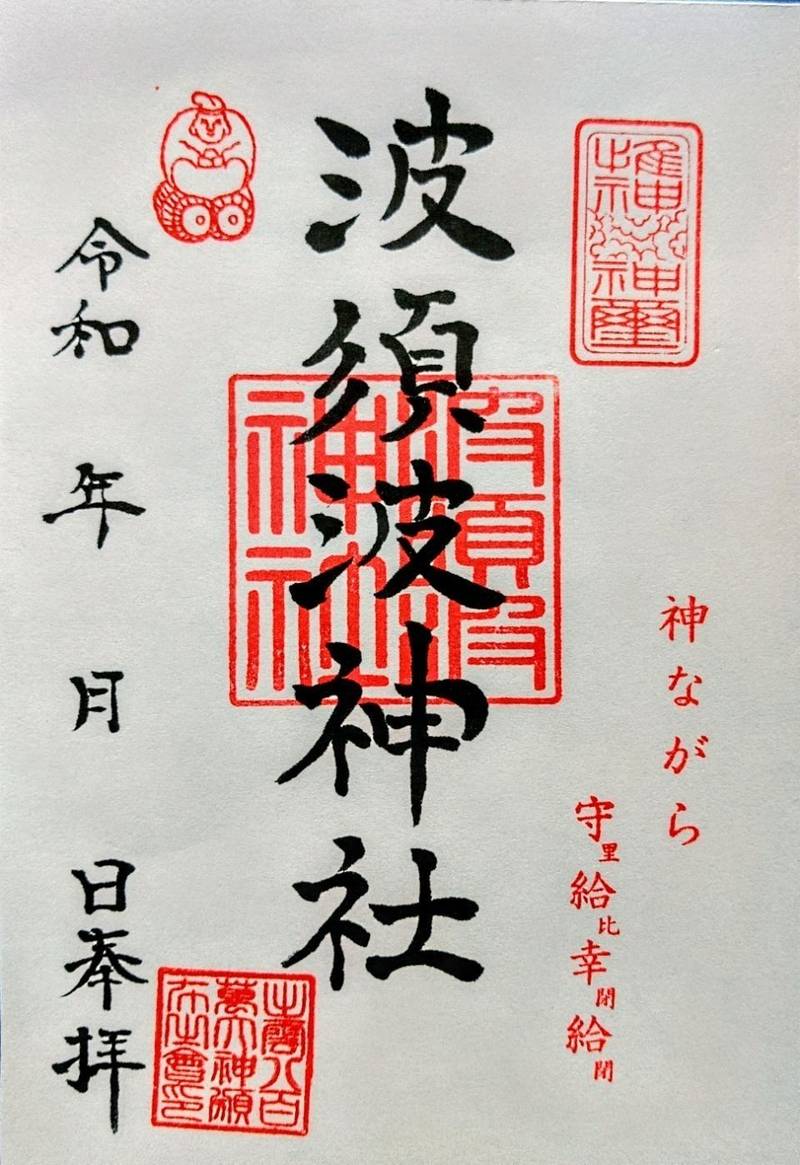 神ながら
守里給比幸閉給閉
波須波神社
波須波神社
令和 年 月 日奉拝